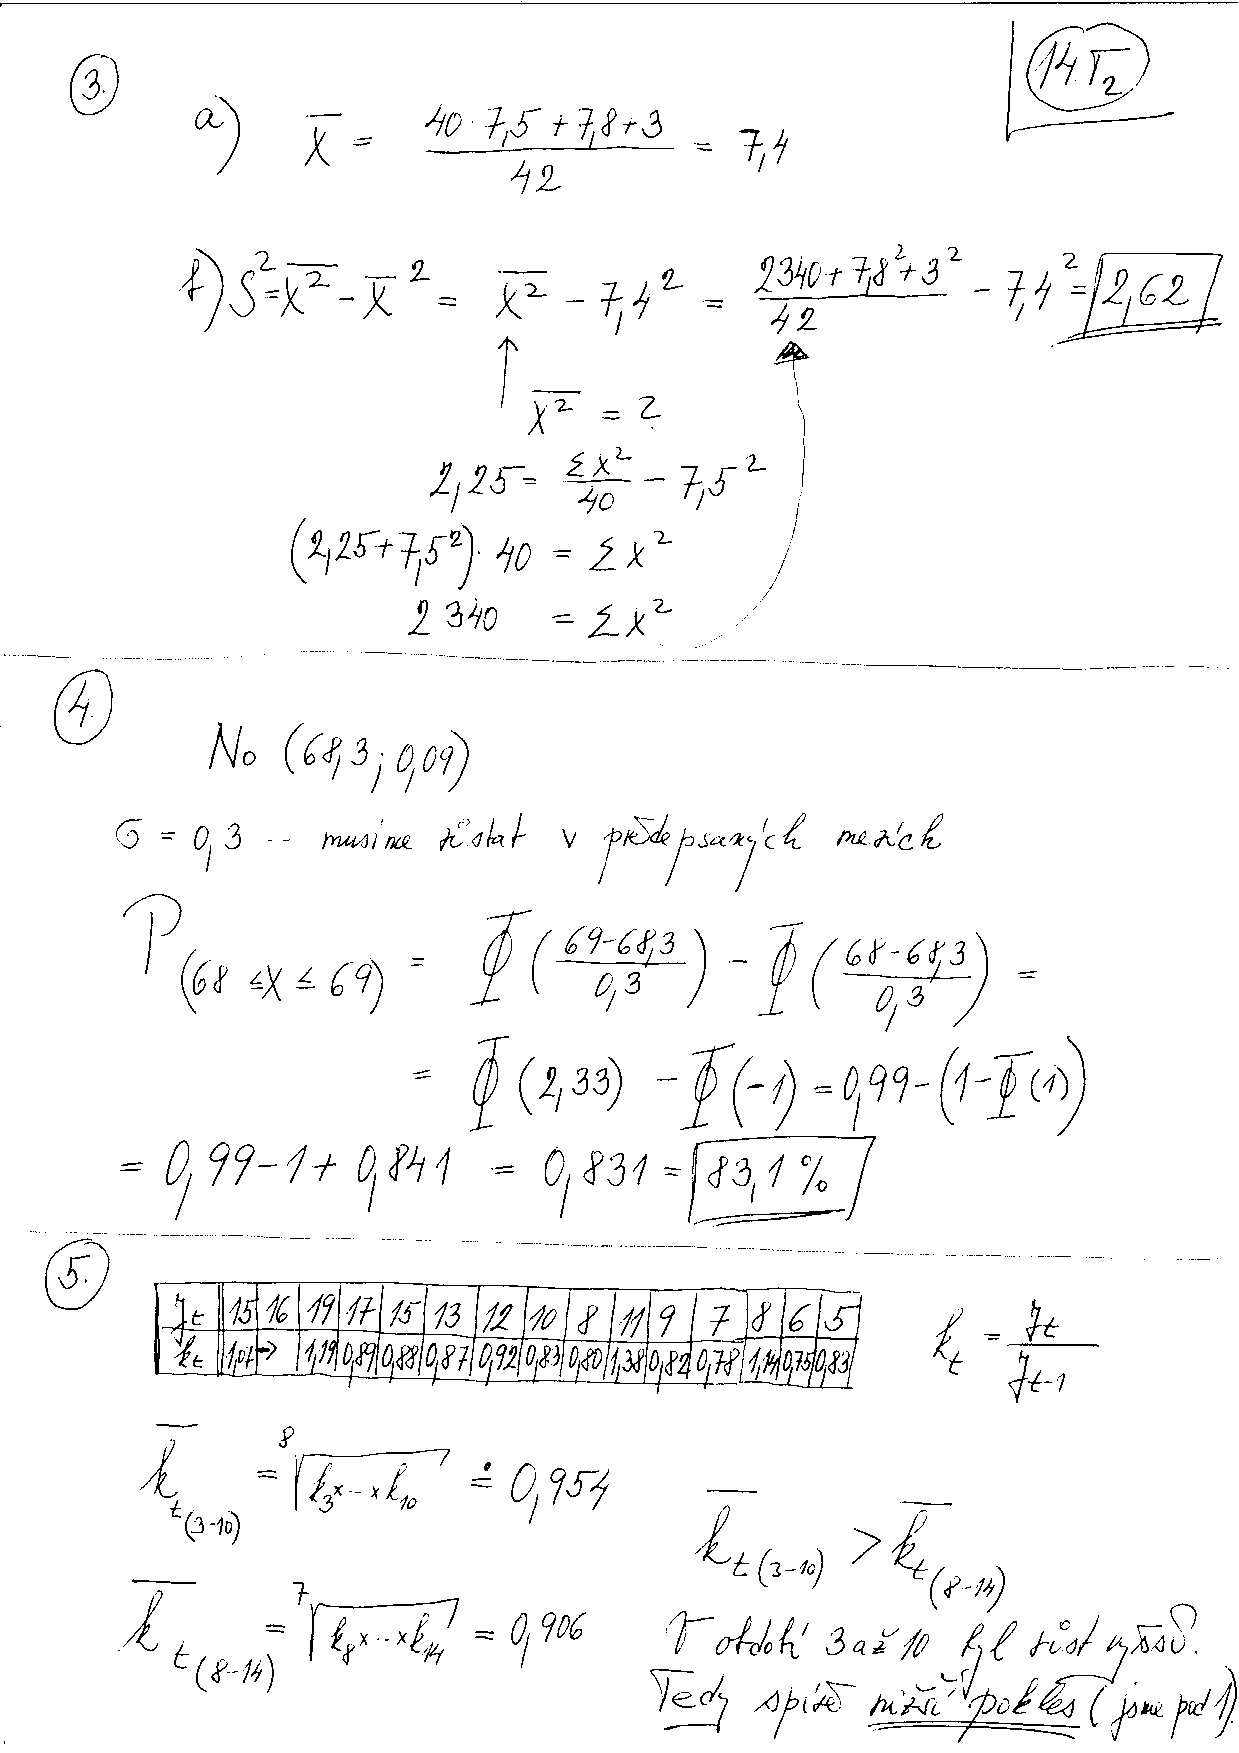 14.T₂
3.
a) x̄ = (40·7,5+7,8+3)/42 = 7,4
b) S² = \overline{x²} - x̄² = \overline{x²} - 7,4² = (2340+7,8²+3²)/42 - 7,4² = 2,62
↑ \overline{x²} = ?
2,25 = Σx²/40 - 7,5²
(2,25+7,5²)·40 = Σx²
2340 = Σx²
4.
No (68,3; 0,09)
σ = 0,3 -- musíme zůstat v předepsaných mezích
P(68 ≤ X ≤ 69) = Φ((69-68,3)/0,3) - Φ((68-68,3)/0,3) =
= Φ(2,33) - Φ(-1) = 0,99-(1-Φ(1))
= 0,99-1+0,841 = 0,831 = 83,1%
5.
yt 15 16 19 17 15 13 12 10 8 11 9 7 8 6 5
kt 1,07 → 1,19 0,89 0,88 0,87 0,92 0,83 0,80 1,38 0,82 0,78 1,14 0,75 0,83
k_t = y_t/y_{t-1}
\overline{k}_{t(3-10)} = ⁸√(k₃×...×k₁₀) ≐ 0,954
\overline{k}_{t(3-10)} > \overline{k}_{t(8-14)}
\overline{k}_{t(8-14)} = ⁷√(k₈×...×k₁₄) = 0,906
V období 3 až 10 byl růst vyšší.
Tedy spíše nižší pokles (jsme pod 1).